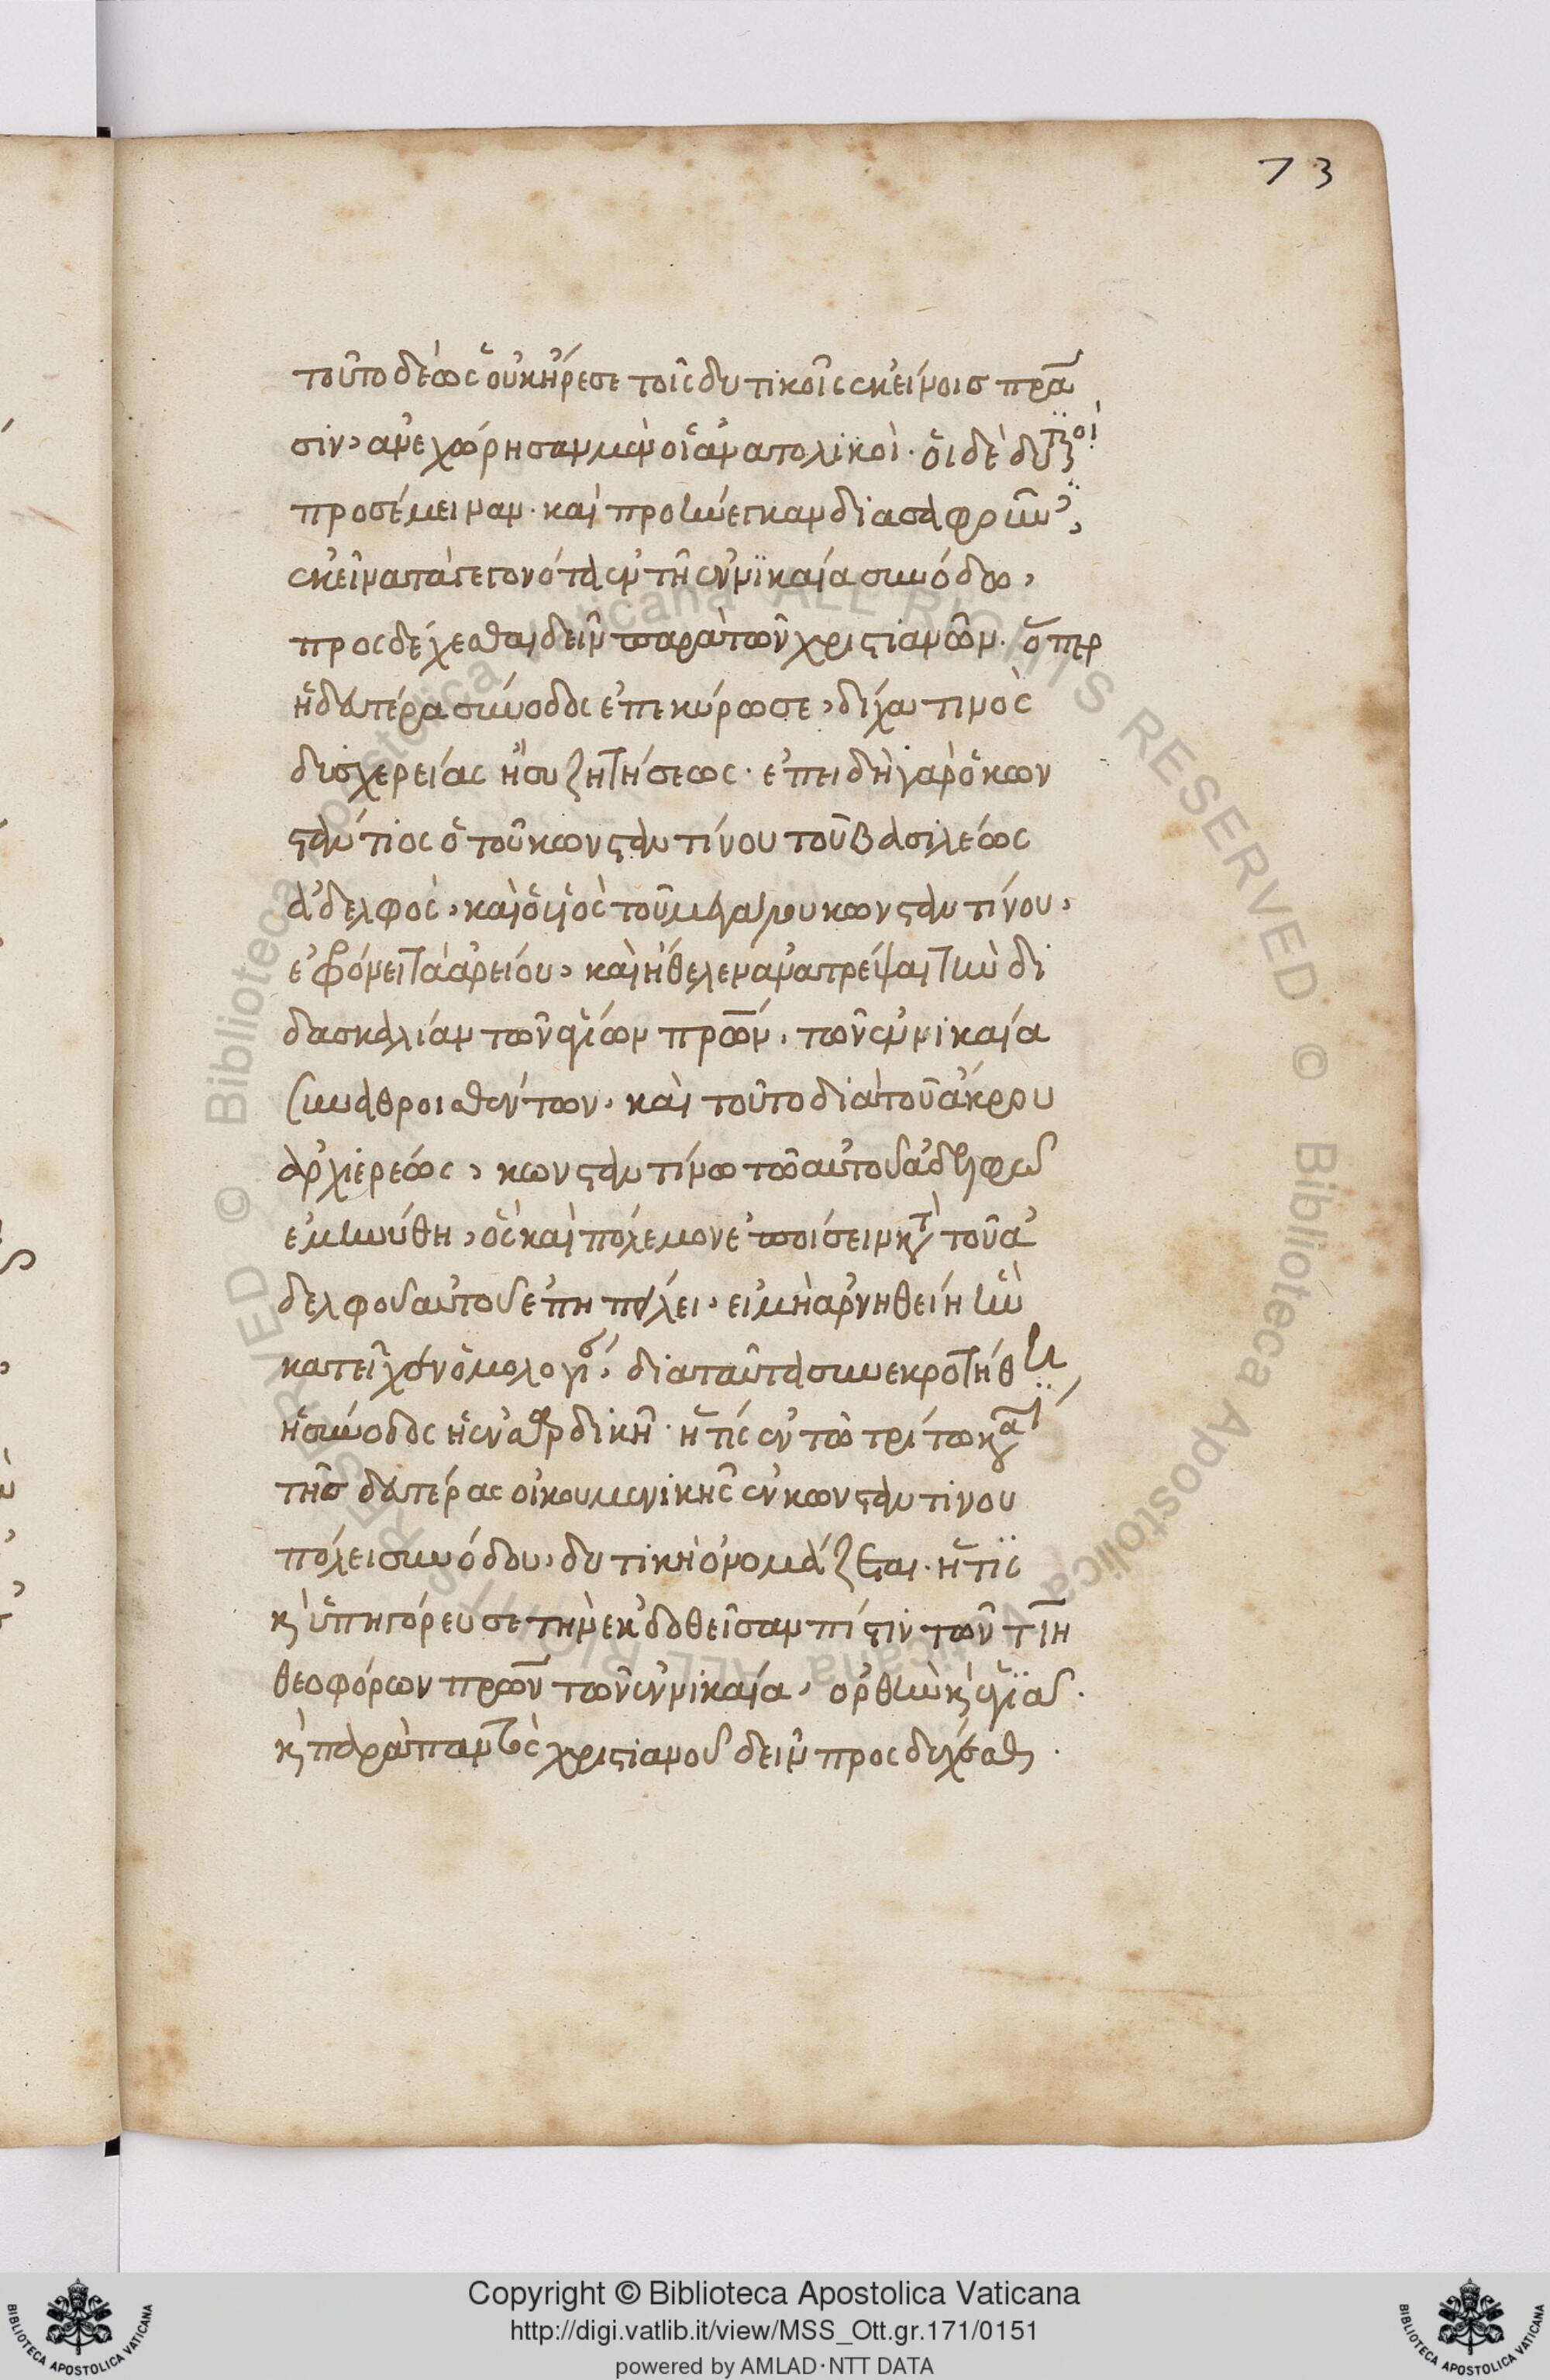 73
τοῦτο δὲ ὡς οὐκ ἤρεσε τοῖς δυτικοῖς ἐκείνοις πρα
σιν, ἀνεχώρησαν μὲν οἱ ἀνατολικοὶ. οἱ δὲ δυτικοὶ
προσέμειναν. καὶ προὐνέγκαν διασαφοῦν,
ἐκεῖνα τὰ γεγονότα ἐν τῆ ἐν νικαία συνόδω,
προσδέχεσθαι δεῖν παρὰ τῶν χριστιανῶν. ὅπερ
ἡ δευτέρα σύνοδος ἐπεκύρωσε, δίχα τινὸς
δυσχερείας ἢ συζητήσεως. ἐπειδὴ γὰρ ὁ κων
στάντιος ὁ τοῦ κωνσταντίνου τοῦ βασιλέως
ἀδελφὸς, καὶ ὁ υἱὸς τοῦ μεγάλου κωνσταντίνου,
ἐφρόνει τὰ ἀρείου, καὶ ἤθελεν ἀνατρέψαι τὴν δι
δασκαλίαν τῶν ἁγίων πρων, τῶν ἐν νικαία
συναθροισθέντων. καὶ τοῦτο διὰ τοῦ ἄκρου
ἀρχιερέως, κωνσταντίνω τῶ αὐτοῦ ἀδελφῶ
ἐμηνύθη, ὃς καὶ πόλεμον ἐποίσειν κατὰ τοῦ ἀ
δελφοῦ αὐτοῦ ἐπηπείλει, εἰ μὴ ἀρνηθείη ἣν
κατεῖχεν ὁμολογί. διὰ ταῦτα συνεκροτήθη
ἡ σύνοδος ἡ ἐν σαρδικῆ. ἥτις ἐν τῶ τρίτω κα
τῆς δευτέρας οἰκουμενικῆς ἐν κωνσταντίνου
πόλει συνόδου, δυτικὴ ὀνομάζεται. ἥτις
κ ὑπηγόρευσε τὴν ἐκδοθεῖσαν πίστιν τῶν τιη
θεοφόρων πρων τῶν ἐν νικαία, ὀρθὴν κ ἁγίαν.
κ παρὰ παντὸς χριστιανοῦ δεῖν προσδέχεσθαι.
Copyright © Biblioteca Apostolica Vaticana
http://digi.vatlib.it/view/MSS_Ott.gr.171/0151
powered by AMLAD·NTT DATA